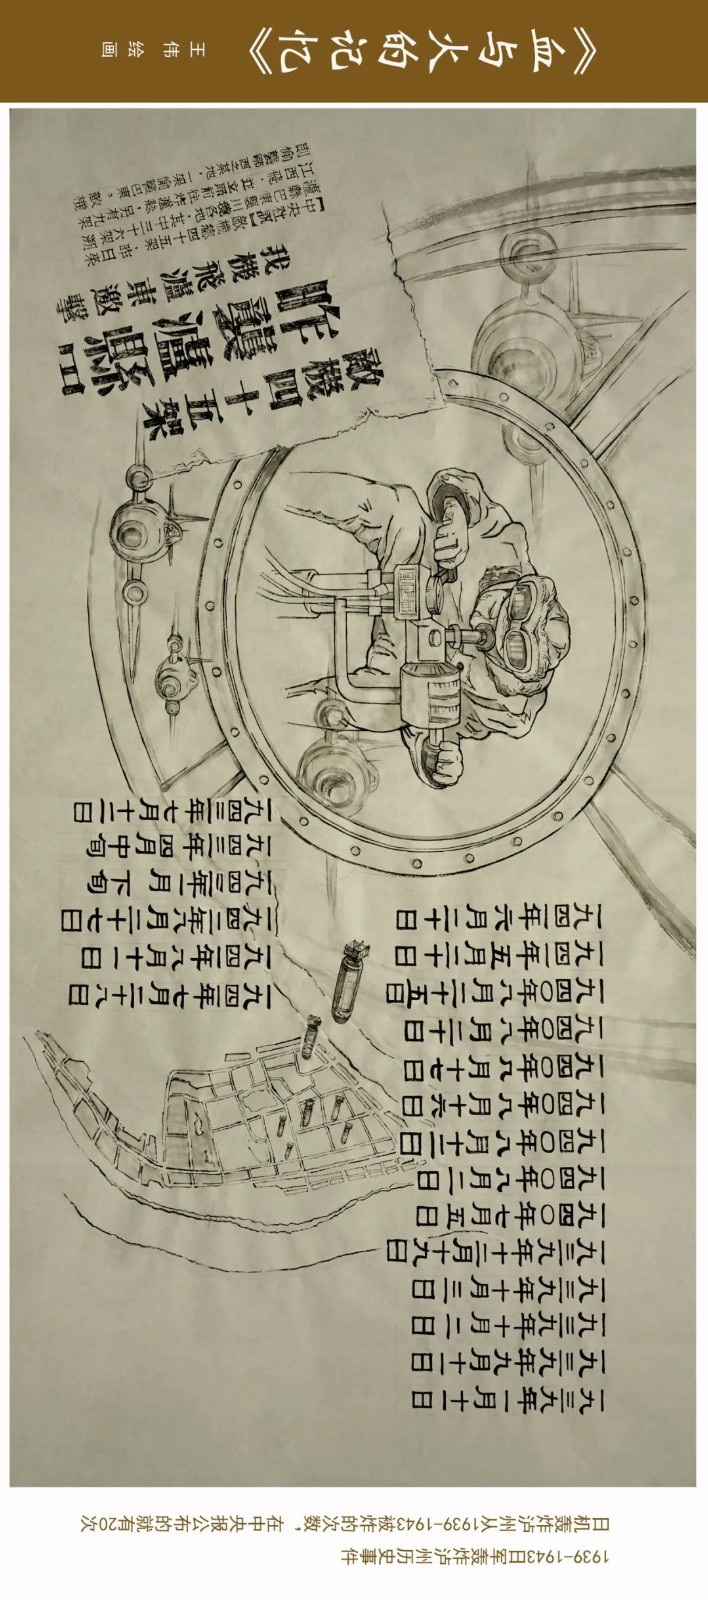 《血与火的记忆》
王伟绘画
敵機四十五架
昨襲瀘縣
我機飛瀘東邀擊
【中央社訊】
一九三九年一月十一日
一九三九年九月十一日
一九三九年十月二日
一九三九年十月三日
一九三九年十二月十九日
一九四〇年七月五日
一九四〇年八月二日
一九四〇年八月十二日
一九四〇年八月十六日
一九四〇年八月十七日
一九四〇年八月二十日
一九四〇年八月二十五日
一九四一年五月二十日
一九四一年六月二十日
一九四一年七月二十八日
一九四一年八月十一日
一九四二年八月二十七日
一九四三年一月下旬
一九四三年四月中旬
一九四三年七月十二日
1939-1943日军轰炸泸州历史事件
日机轰炸泸州从1939-1943被炸的次数，在中央报公布的就有20次